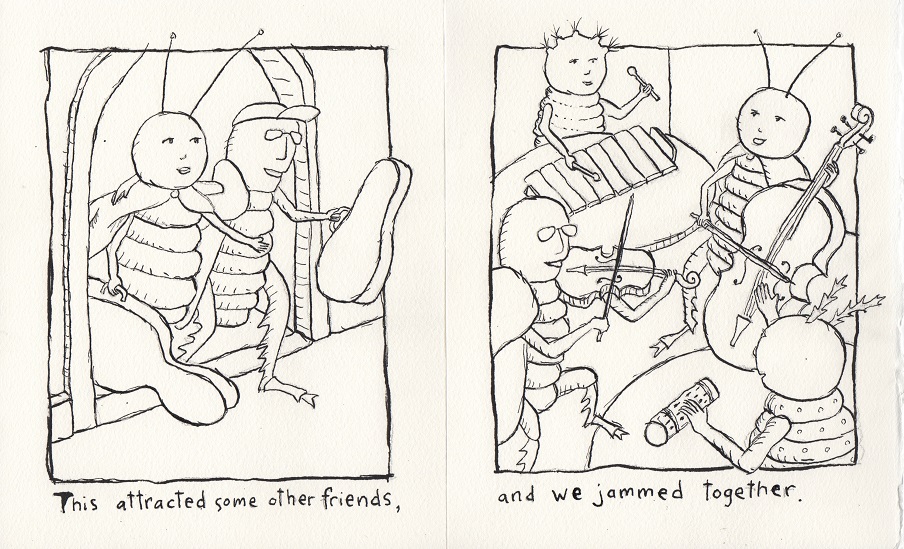 This attracted some other friends,
and we jammed together.